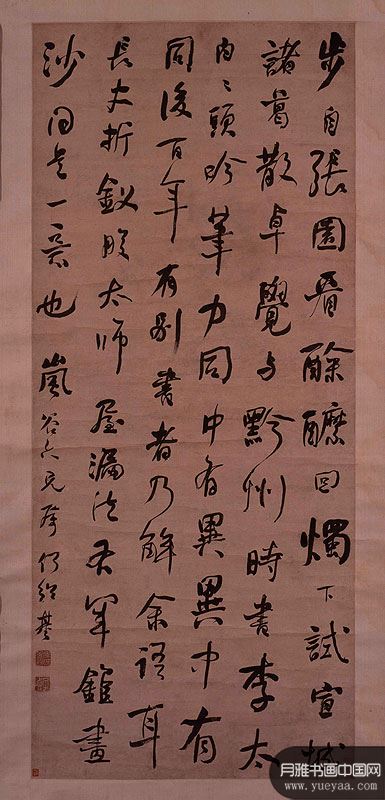 步自張園看酴醾回燭下試宣城
諸葛散卓覺与黔州時書李太
白〻頭吟筆力同中有異異中有
同後百年有別書者乃解余語耳
長史折釵股太師屋漏法右軍錐畫
沙同是一意也 嵐谷六兄屬 何紹基
月雅书画中国网
www.yueyaa.com